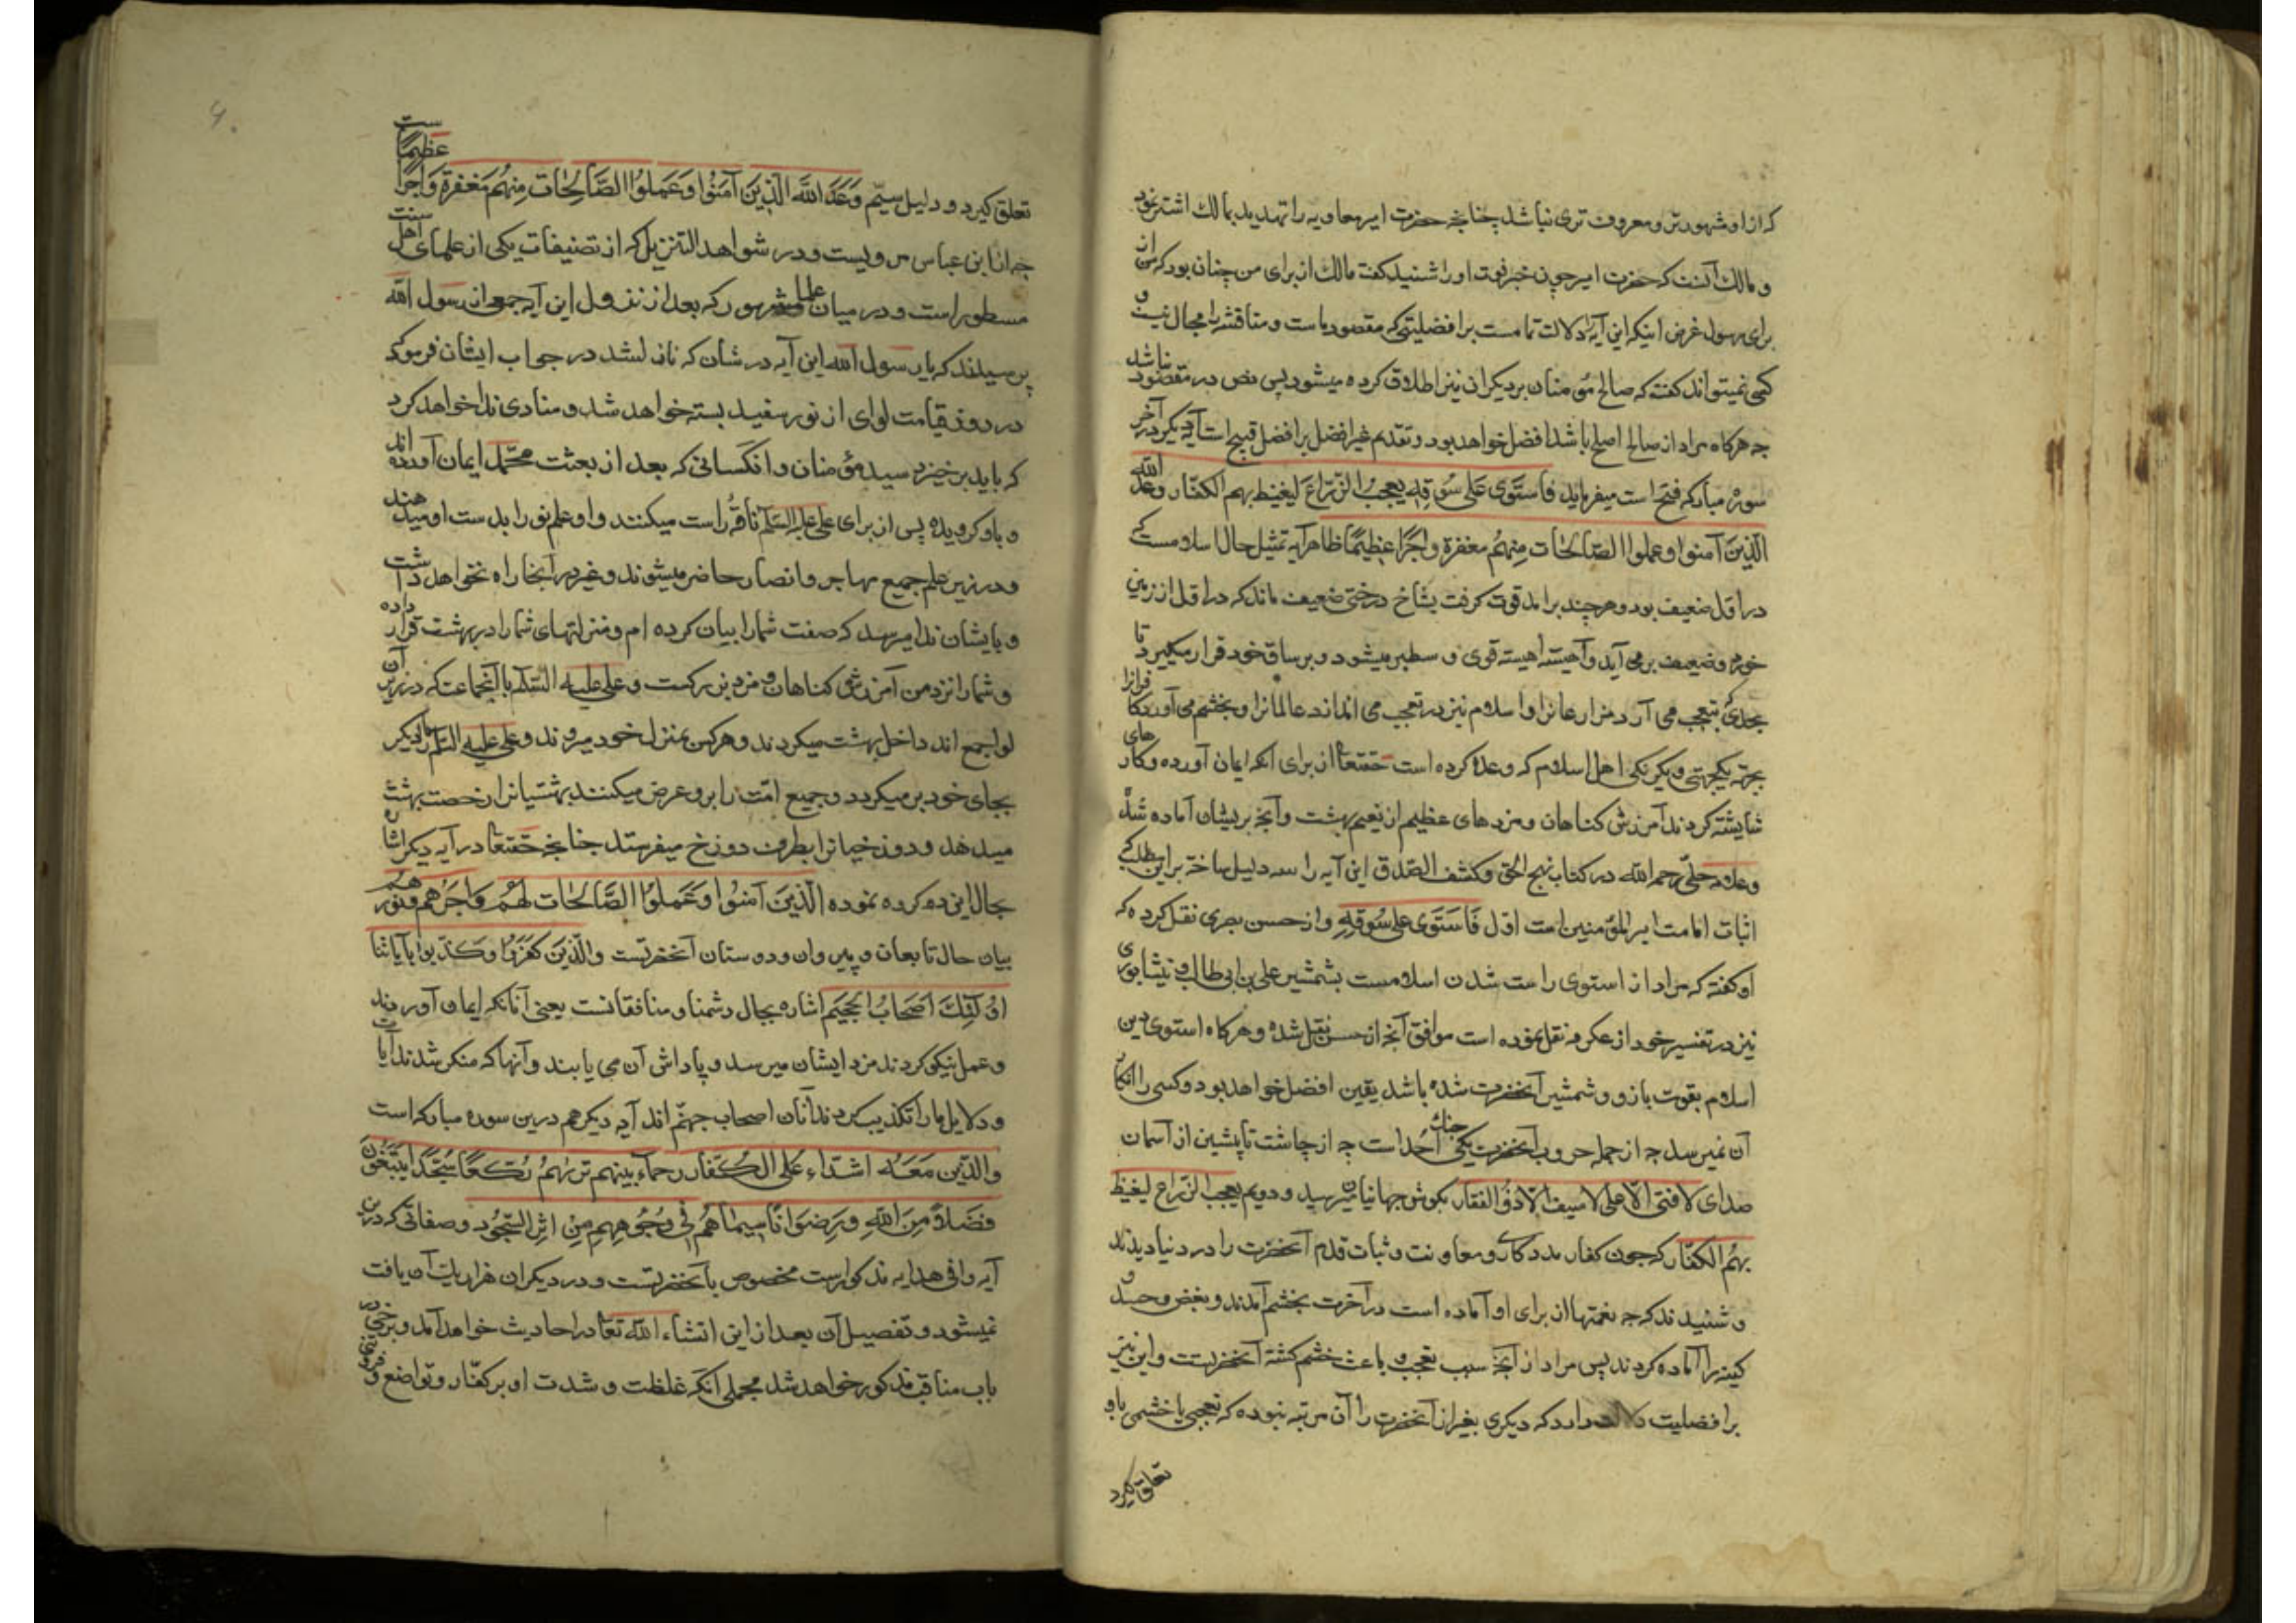 که ازو مشهورتر و معروف تری نباشد چنانچه حضرت امیر معاویه را تهدید بمالک اشتر نمود
و مالک آنست که حضرت امیر چون خبر فوت او را شنید گفت مالک از برای من چنان بود که من از
برای رسول غرض اینکه این آیه را دلالت تمامست بر افضلیتی که مقصود ماست و مناقشه را مجال نیست و
کسی نمیتواند گفت که صالح مؤمنان بر دیگران نیز اطلاق کرده میشود پس نص در مقصود نباشد
چه هرگاه مراد از صالح اصلح باشد افضل خواهد بود و تقدیم غیر افضل بر افضل قبیح است آیه دیگر در آخر
سوره مبارکه فتح است میفرماید فَاستَوی عَلی سُوقِهِ یعجبُ الزّرّاعَ لیغیظ بهم الکفّار وعد الله
الّذینَ آمنوا و عملوا الصّالحات مِنهُم مغفرة و اجرًا عظیمًا ظاهر آیه تمثیل حال اسلامست که
در اول ضعیف بود و هر چند برآمد قوت گرفت بشاخ درختی ضعیف ماند که در اول از زمین
خورد و ضعیف بر می آید و آهسته اهسته قوی و سطبر میشود و بر ساق خود قرار میگیرد تا
بحدی که بتعجب می آرد مزارعانرا و اسلام نیز در تعجب می اندازد عالمانرا و بخشم می آورد کافرانرا
بجهة یکجهتی و یکرنگی اهل اسلام که وعده کرده است حقتعا از برای انکه ایمان آورده و کارهای
شایسته کردند آمرزش گناهان و مزدهای عظیم از نعیم بهشت و آنچه بریشان آماده شده
و علامه حلّی رحمه الله در کتاب نهج الحق و کشف الصّدق این آیه را سه دلیل ساخته بر این مطلب که
اثبات امامت امیرالمؤمنین است اوّل فَاستَوی علی سُوقِهِ و از حسن بصری نقل کرده که
او گفته که مراد از استوی راست شدن اسلامست بشمشیر علی بن ابی طالب و نیشابوری
نیز در تفسیر خود از عکرمه نقل نموده است موافق آنچه از حسن نقل شده و هرگاه استوی دین
اسلام بقوت بازو و شمشیر آنحضرت شده باشد یقین افضل خواهد بود و کسی را انکار
آن نمیرسد چه از جمله حروب آنحضرت یکی جنک اُحد است چه از چاشت تا پیشین از آسمان
صدای لا فتی الّا علی لا سیف الّا ذُو الفقار بگوش جهانیان میرسید و دویم یعجب الزرّاع لیغیظ
بهُم الکفّار که چون کفار مددکاری و معاونت و ثبات قدم آنحضرت را در دنیا دیدند
و شنیدند که چه نعمتها از برای او آماده است در آخرت بخشم آمدند و بغض و حسد و
کینه را آماده کردند پس مراد از آنچه سبب تعجب و باعث خشم کشته آنحضرتست و این نیز
بر افضلیت دلالت دارد که دیگری بغیر از آنحضرت را آن مرتبه نبوده که تعجبی یا خشمی باو
تعلق کیرد
تعلق کیرد و دلیل سیّم وَعَدَ اللهَ الّذینَ آمَنُوا وَعَمِلُوا الصَّالِحَات مِنهُم مَغفرة وَاجرًا عظیمًا ست
چه از ابن عباس مرویست و در شواهد التنزیل که از تصنیفات یکی از علمای اهل سنت
مسطور است و در میان علما مشهور که بعد از نزول این آیه جمعی از رسول الله
پرسیدند که یا رسول الله این آیه در شان که نازل شد در جواب ایشان فرمود که
در روز قیامت لوای از نور سفید بسته خواهد شد و منادی ندا خواهد کرد
که باید برخیزد سید مؤمنان و انکسانی که بعد از بعثت محمّد ایمان آورده اند
و باو کرویده پس از برای علی علیه السّلم ناقه راست میکنند و او علم نور را بدست او میدهند
و در زیر علم جمیع مهاجر و انصار حاضر میشوند و غیر در آنجا راه نخواهد داشت
و بایشان ندا میرسد که صفت شما را بیان کرده ام و منزلتهای شما را در بهشت قرار داده
و شما را نزد من آمرزش گناهان و مزد بزرکست و علی علیه السّلم با آنجماعت که در زیر آن
لوا جمع اند داخل بهشت میکردند و هرکس بمنزل خود میروند و علی علیه السّلم بار دیگر
بجای خود برمیکردد و جمیع امّت را برو عرض میکنند بهشتیانرا رخصت بهشت
میدهد و دوزخیانرا بطرف دوزخ میفرستد چنانچه حقتعا در آیه دیگر اشاره
بحال این دو کرده نموده الّذینَ آمَنُوا وَعَمِلُوا الصَّالحَات لَهُم وَاجرُهُم ونُورهُم
بیان حال تابعان و پیروان و دوستان آنحضرتست والّذینَ کَفَرُوا وَکَذّبوا بِآیَاتِنا
اوُلئِکَ اَصحَابُ الجَحیم اشاره بحال دشمنان و منافقانست یعنی آنانکه ایمان آوردند
و عمل نیکو کردند مزد ایشان میرسد و پاداش آن می یابند و آنها که منکر شدند آیات
و دلایل ما را تکذیب کردند آنان اصحاب جهنّم اند آیه دیگر هم درین سوره مبارکه است
والّذین مَعَهُ اشدّاءِ علی الکُفّار رحماء بینهم تریٰهُم رُکّعًا سُجّدًا یَبتَغُونَ
فضلًا مِنَ اللهِ ورِضوَانًا سِیمَاهُم فی وُجُوهِهِم مِن اَثرِ السّجُود و صفاتی که درین
آیه وافی هدایه مذکورست مخصوص بآنحضرتست و در دیگران هزار یک آن یافت
نمیشود و تفصیل آن بعد از این انشاء الله تعا در احادیث خواهد آمد و برخی در
باب مناقب مذکور خواهد شد مجملی انکه غلظت و شدت او بر کفّار و تواضع و فروتنی